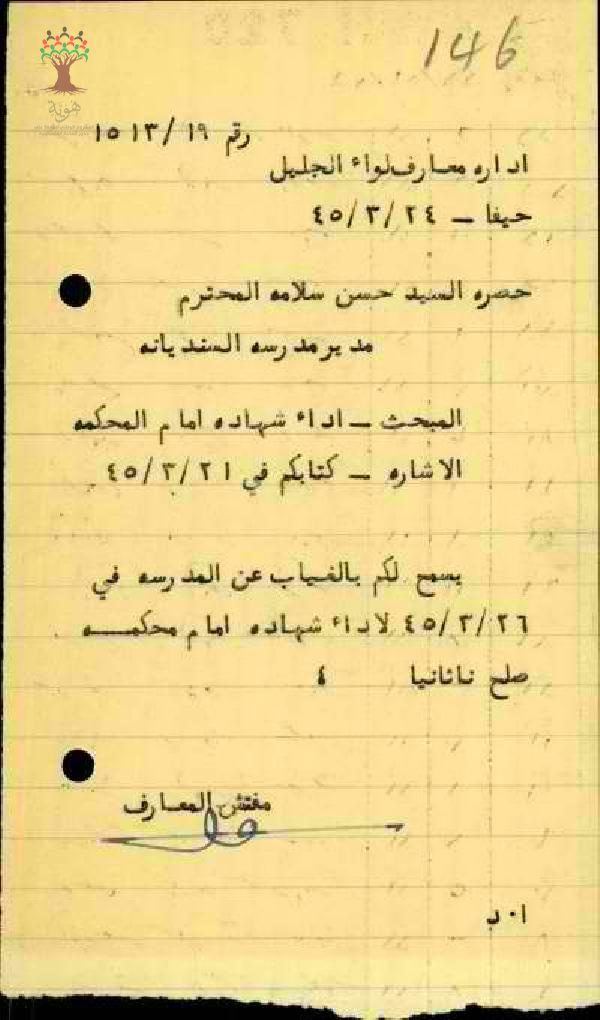 146
هوية
رقم ١٩/ ١٣ ١٥
اداره معارف لواء الجليل
حيفا – ٤٥/٣/٢٤
حضره السيد حسن سلامه المحترم
مدير مدرسه السنديانه
المبحث – اداء شهاده امام المحكمه
الاشاره – كتابكم في ٤٥/٣/٢١
يسمح لكم بالغياب عن المدرسه في
٤٥/٣/٢٦ لاداء شهاده امام محكمـــه
صلح ناثانيا ٤
مفتش المعارف
ا٠ ب